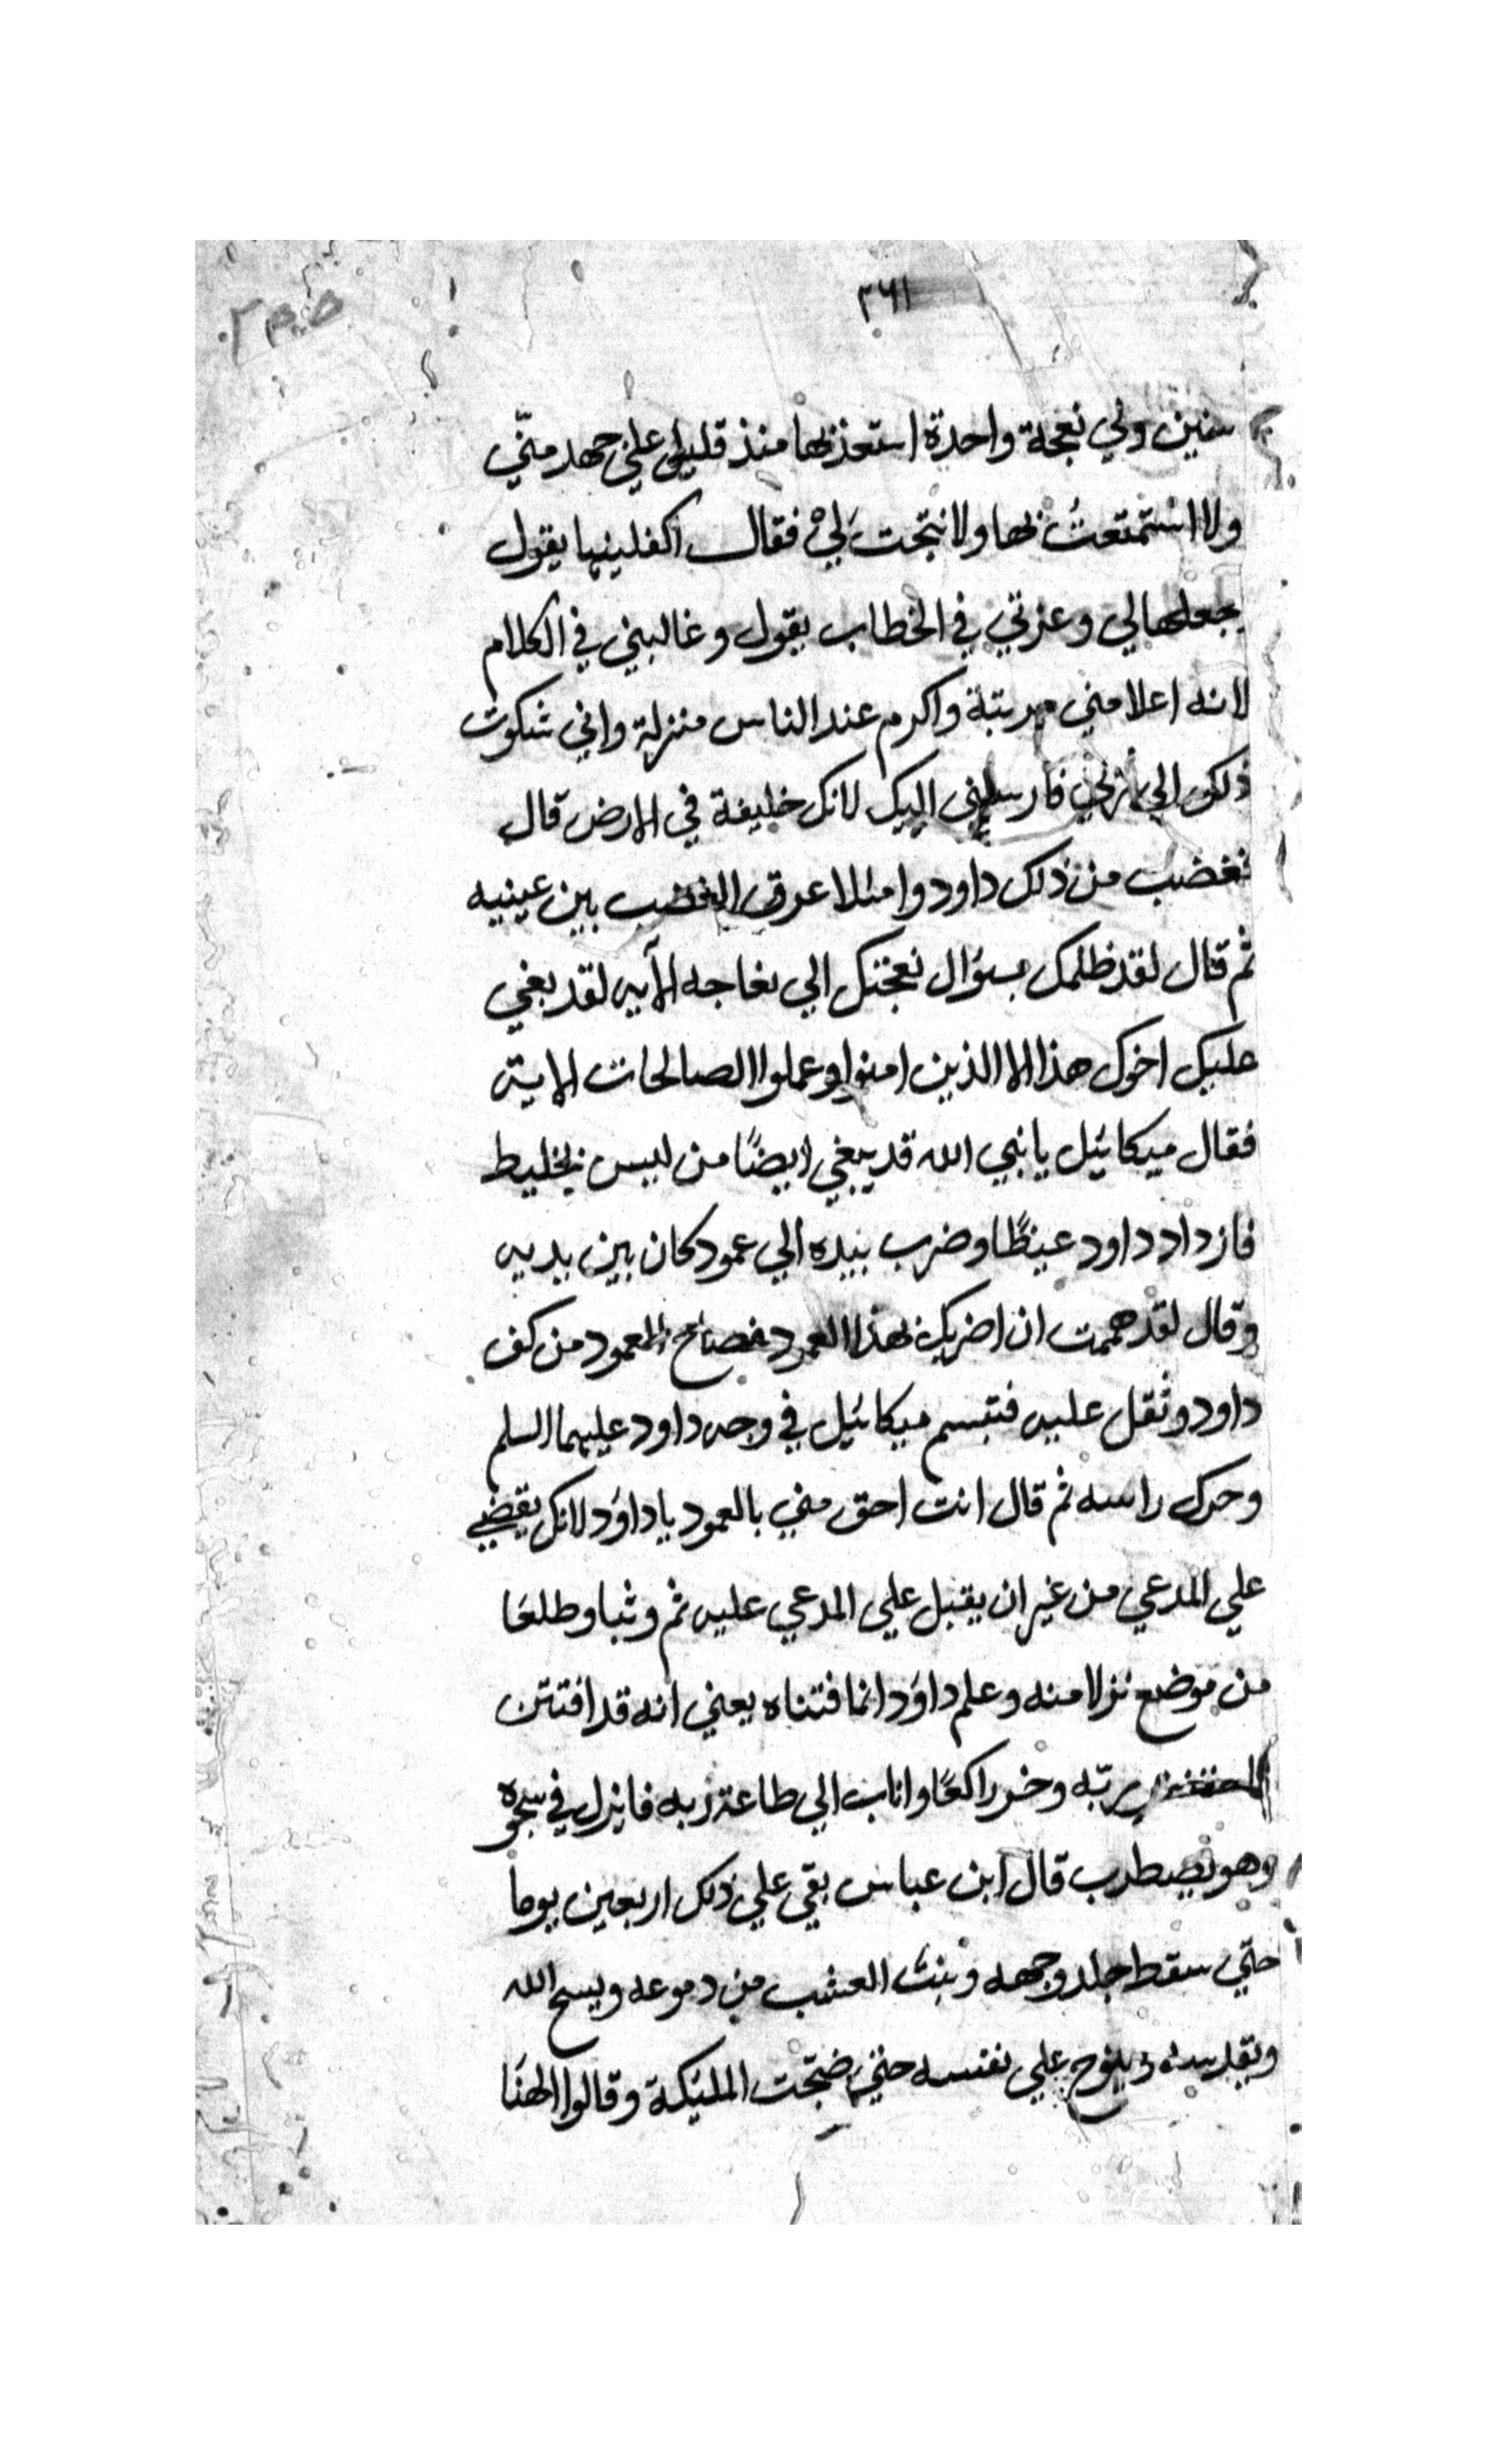 ٣٦١
سنين ولي نعجة واحدة استعذبها منذ قليل علي جهد منّي
ولا استمتعتُ بها ولا نتجت لي فقال اكفلينها يقول
يجعلها لي وعزني في الخطاب يقول وغالبني في الكلام
لانه اعلا مني مرتبة واكرم عند الناس منزلة واني شكوت
ذلك الي ربي فارسلني اليك لانك خليفة في الارض قال
فغضب من ذلك داود وامتلا عرق الغضب بين عينيه
ثم قال لقد ظلمك بسؤال نعجتك الي نعاجه الآيه لقد بغي
عليك اخوك هذا الا الذين امنوا وعملوا الصالحات الاية
فقال ميكائيل يا نبي الله قد يبغي ايضًا من ليس بخليط
فازداد داود غيظًا وضرب بيده الي عمود كان بين يديه
وقال لقد هممت ان اضربك بهذا العمود فصاح العمود من كف
داود وثقل عليه فتبسم ميكائيل في وجه داود عليهما السلم
وحرك راسه ثم قال انت احق مني بالعمود يا داود لانك يقضي
علي المدعي من غير ان يقبل علي المدعي عليه ثم وثبا وطلعا
من موضع نزلا منه وعلم داود انما فتناه يعني انه قد افتتن
ربّه وخر راكعًا واناب الي طاعة ربه فانزل في سجوه
وهو يضطرب قال ابن عباس بقي علي ذلك اربعين يوما
حتّي سقط جلد وجهه ونبت العشب من دموعه ويسبح الله
ويقدسه وينوح علي نفسه حتي ضجّت المليكة وقالوا الهنا